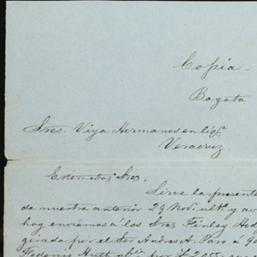 Copia.
Bogota
Sres. Viya Hermanos en liqn.
Veracruz
Estimados Sres.
Sirve la presente
de nuestra anterior 29 Nov. ult. y av
hoy enviamos á los Sres Finlay Hod
girada por el Sor Andres A. Paro á 90
Federico Huth